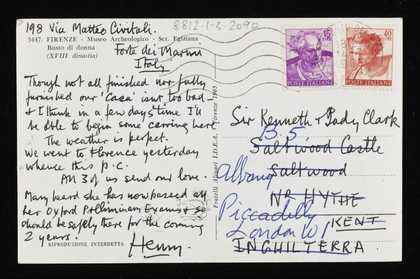 198 Via Matteo Civitali.
8812-1-3-2090
5447. FIRENZE - Museo Archeologico - Sez. Egiziana
Busto di donna
(XVIII dinastia)
Forte dei Marmi
Italy
Though not all finished nor fully
furnished our 'Casa' isn't too bad -
& I think in a few days time I'll
be able to begin some carving here.
The weather is perfect.
We went to Florence yesterday
whence this p.c.
All 3 of us send our love.
Mary heard she has now passed all
her Oxford Preliminary Exams & so
should be safely there for the coming
2 years.
Henry
RIPRODUZIONE INTERDETTA
POSTE ITALIANE
POSTE ITALIANE
40
Sir Kenneth & Lady Clark
B.5
Saltwood Castle
Albany
Saltwood
Nr HYTHE
Piccadilly
KENT
London W1
INGHILTERRA